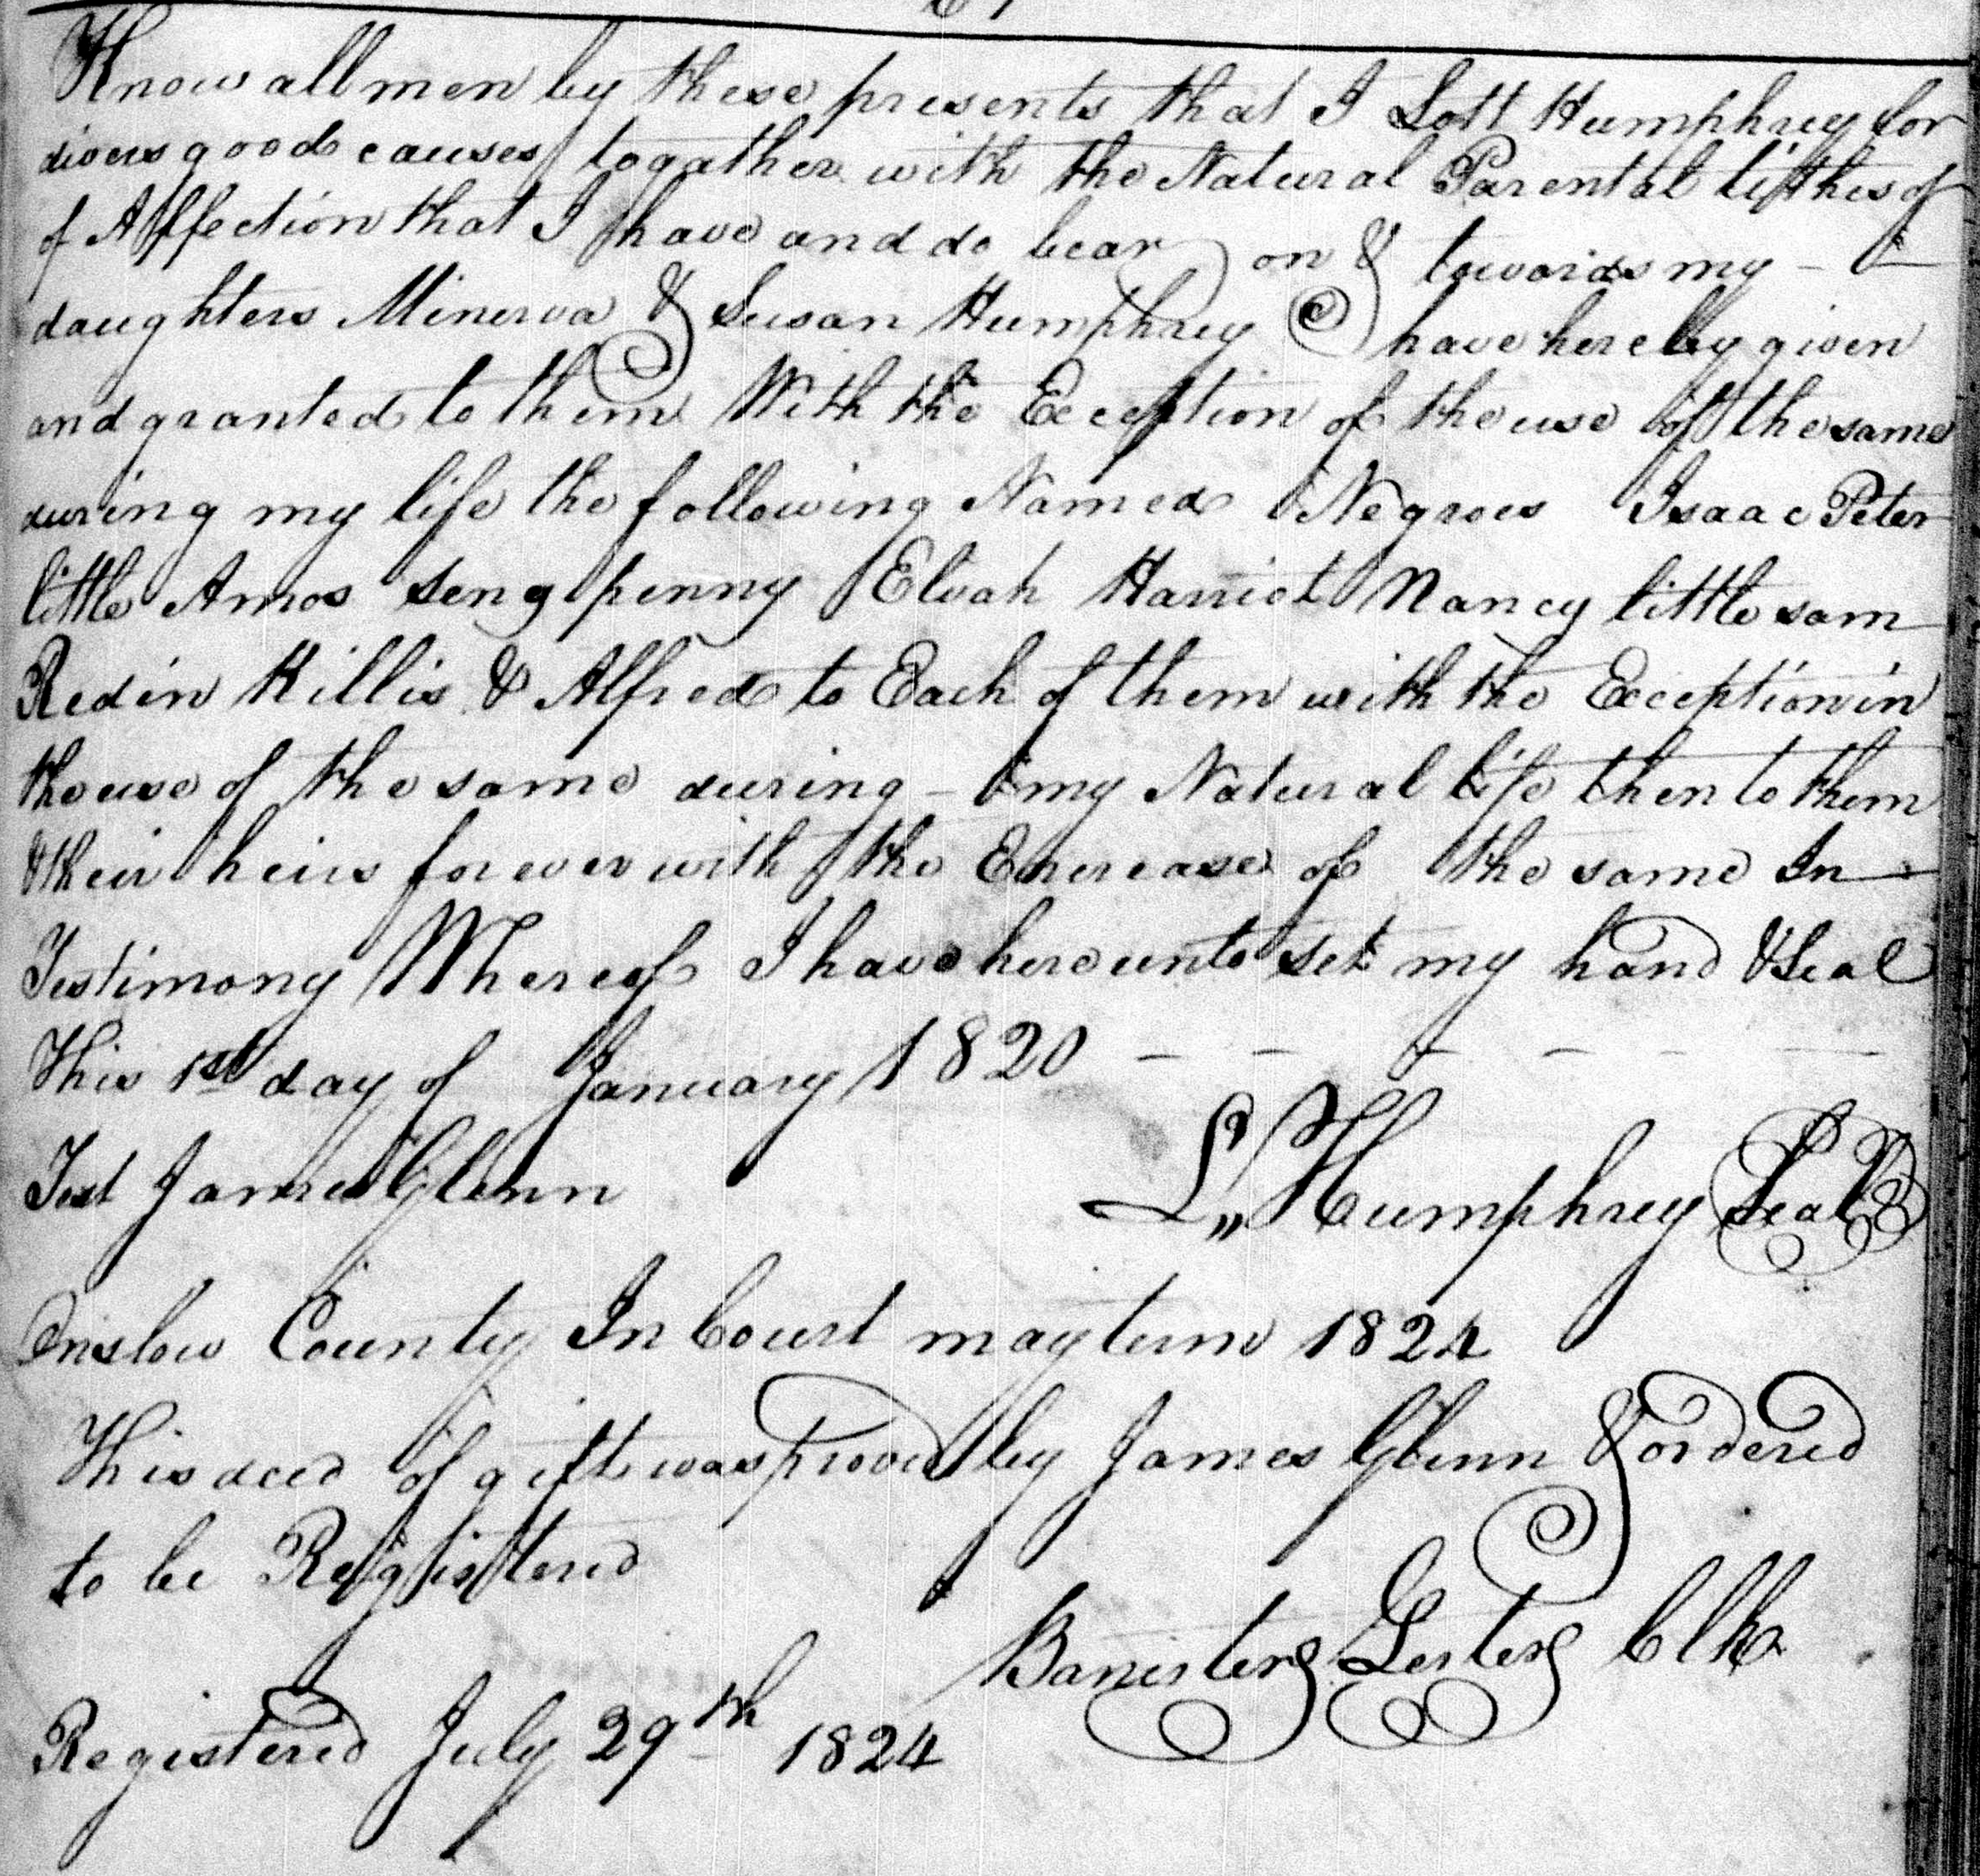 Know all men by these presents that I Lott Humphrey for
divers good causes togather with the Natural Parental tiythes of
of Affection that I have and do bear on & towards my -
daughters Minerva & Susan Humphrey have hereby given
and granted to them With the Exception of the use of the same
during my life the following Named Negroes Isaac Peter
little Amos Seng penny Elvah Harriet Nancy little sam
Redin Hillis & Alfred to Each of them with the Exception in
the use of the same during - my Natural life then to them
& their heirs forever with the Encrease of the same In
Testimony Whereof I have hereunto set my hand & Seal
This 1st day of January 1820 - - - - - -
Test James Glenn L,, Humphrey Seal
Onslow County In Court may term 1824
This deed of gift was proved by James Glenn & ordered
to be Registered
Banister Lester Clk
Registered July 29th 1824